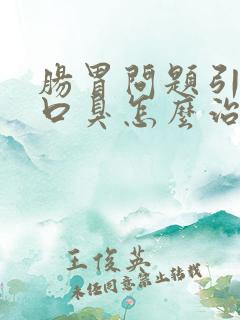 腸胃問題引
口臭怎麼治
王俊英
未经同意禁止转载